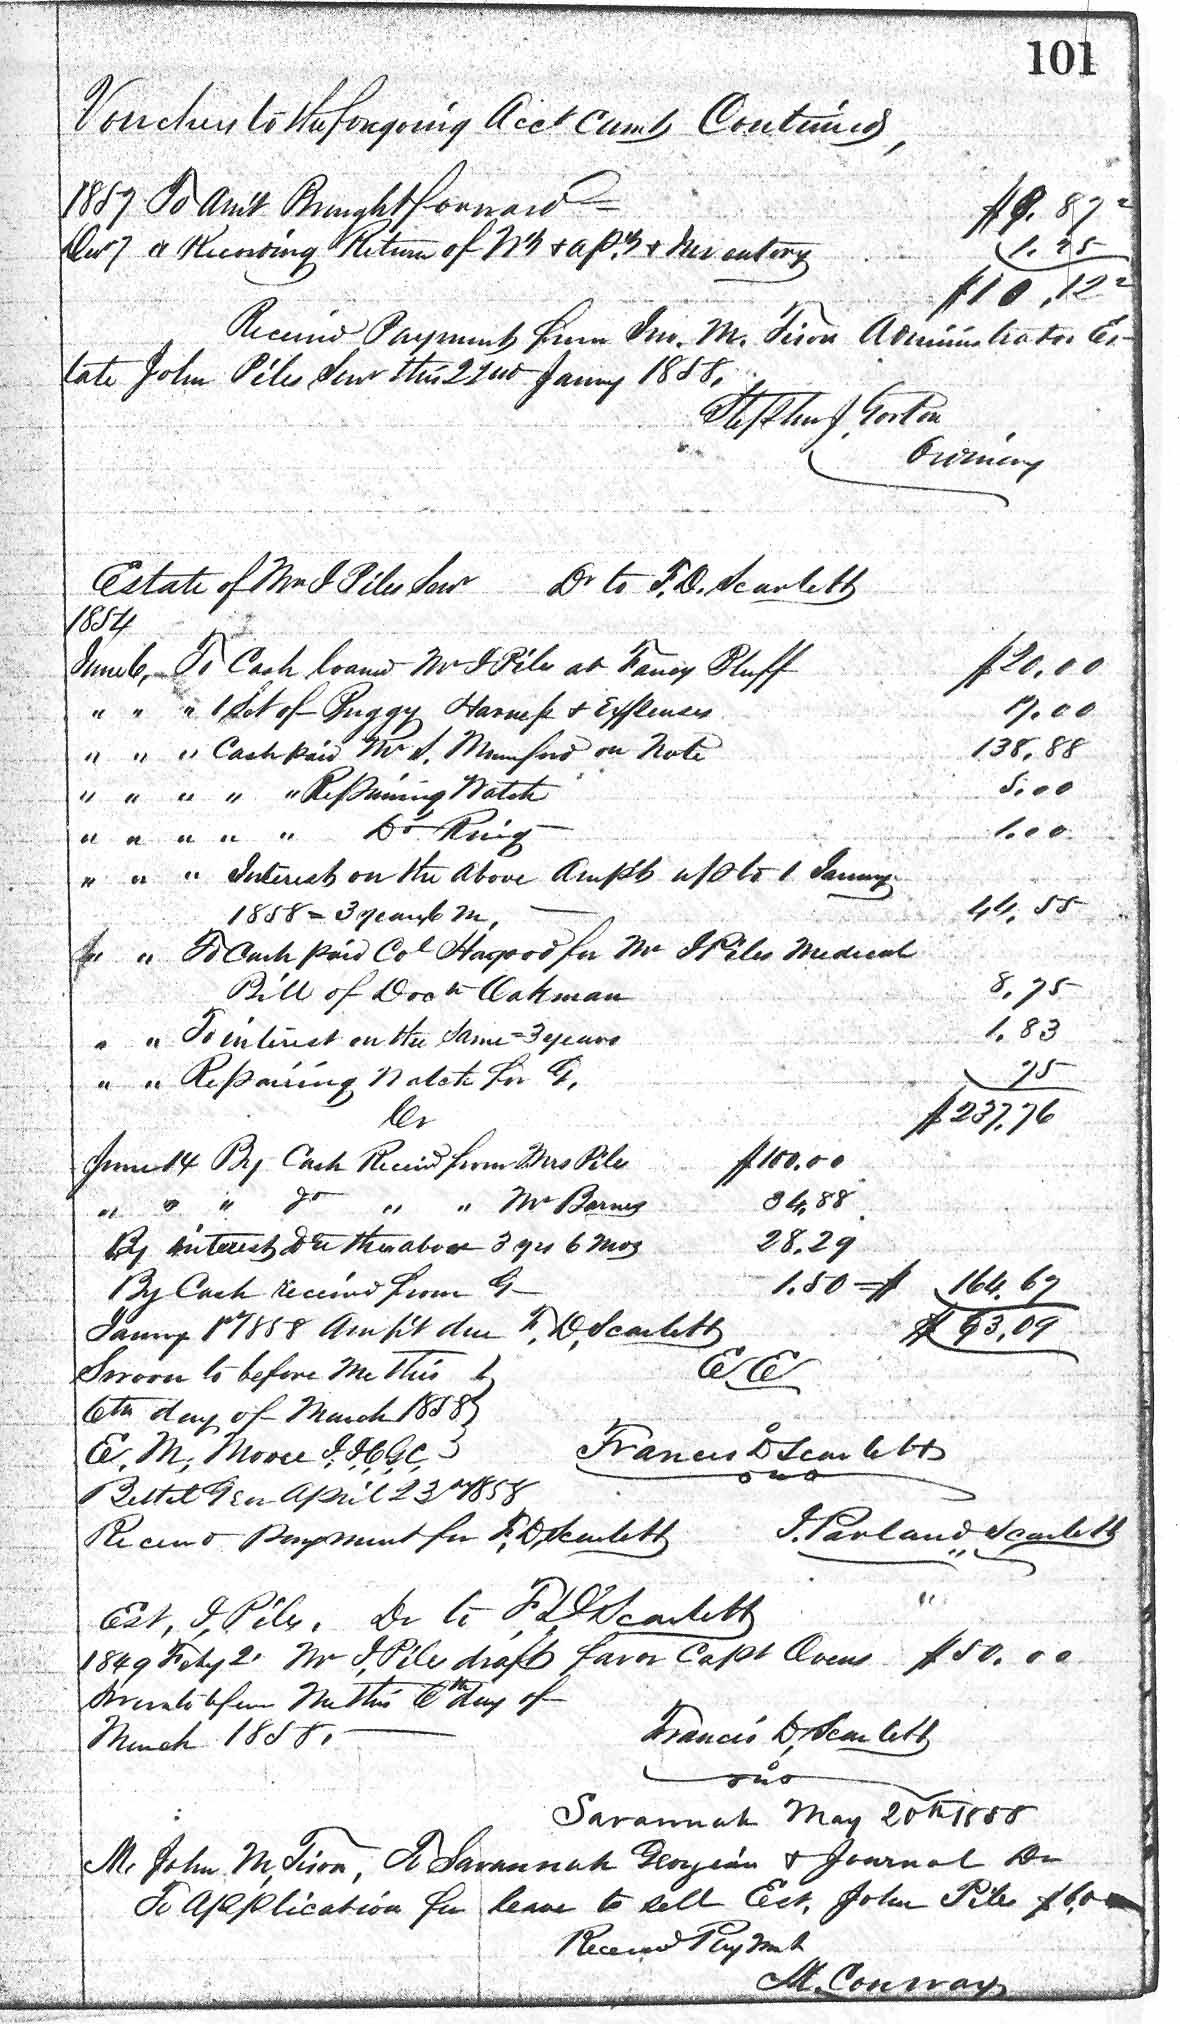 101
Vouchers to the foregoing Acct Curnt Continued,
1857 To Amt Brought forward = $8.87 2
Decr 7 " Recording Return of Ws & aps & Inventory 1.25
$10.12 2
Receivd Payment from Jno. M. Tison Administrator Es-
tate John Piles Senr this 22nd Janny 1858.
Stephen J Gorton
Ordinary
Estate of Mr J Piles Senr Dr to F. D. Scarlett
1854
June 6, To Cash loand Mr J Piles at Fancy Bluff $20.00
" " " 1 Set of Buggy Harness & Expenses 17.00
" " " Cash paid Mr S. Mumford on Note 138.88
" " " " " Repairing Watch 5.00
" " " " " Do Ring 1.00
" " " Interest on the above Am't up to 1 Janny
1858 = 3 years 6 m, 44.55
" " To Cash paid Col Hagood for Mr J Piles Medical
Bill of Doctr Oakman 8.75
" " To interest on the same = 3 years 1.83
" " Repairing Watch for G, 75
Cr $237.76
June 14 By Cash Receivd from Mrs Piles $100.00
" " " do " " Mr Barnes 34.88
By interest Due the above 3 yrs 6 mos 28.29
By Cash receivd from G 1.50 = $ 164.67
Janny 1st 1858 Am't due F, D, Scarlett $ 93.09
Sworn to before Me this E E
6th day of March 1858
E. M. Moore J. I. C. G. C. Francis D Scarlett
Bethel Geo April 23rd 1858
Receivd payment for F, D, Scarlett J. Parland Scarlett
Est, J, Piles. Dr to F, D Scarlett
1849 Feby 2. Mr J, Piles draft favor Capt Owens $50.00
Sworn to before Me this 6th day of
March 1858. Francis D, Scarlett
Savannah May 20th 1858
Mr John M, Tison, To Savannah Georgian & Journal Dr
To Application for leave to sell Est. John Piles $6,0
Receivd Paymnt
M. Conway